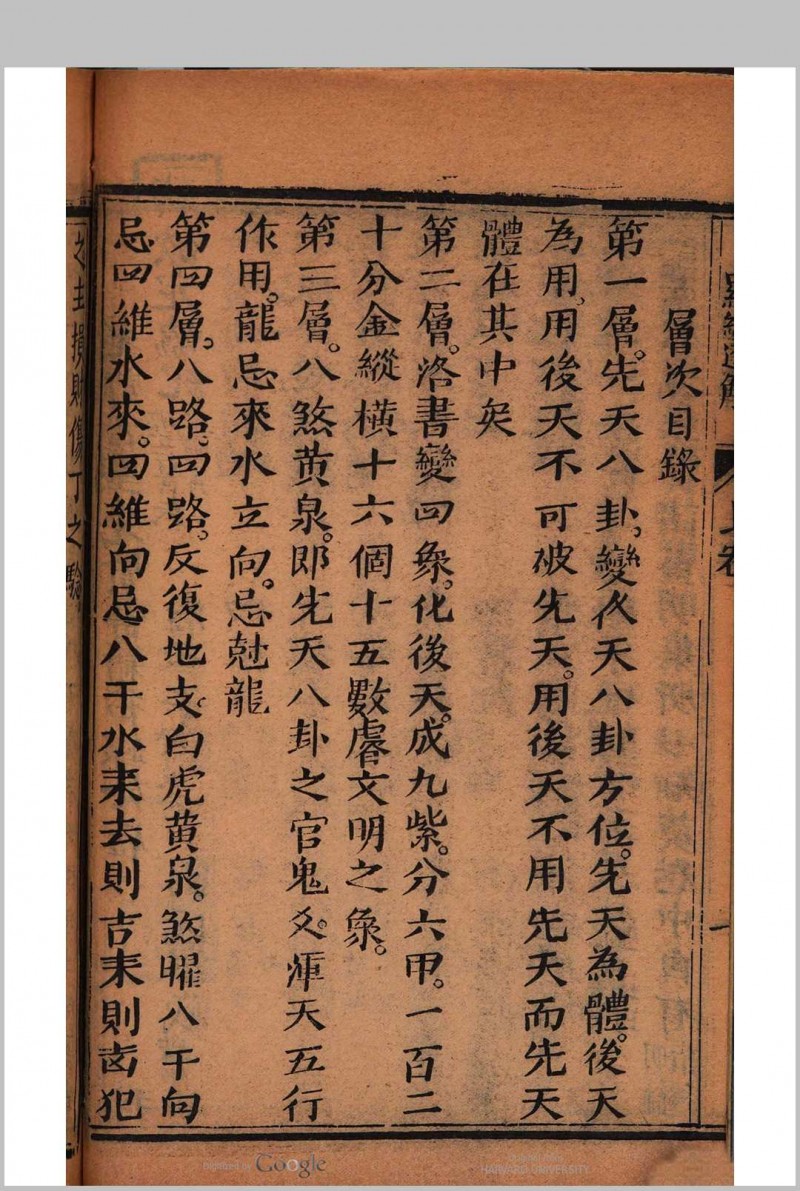 羅經透解
上卷
一
層次目錄
第一層。先天八卦。變后天八卦方位。先天為體。後天
為用。用後天不可破先天。用後天不用先天而先天
體在其中矣
第二層。洛書變四象。化後天。成九紫。分六甲。一百二
十分金縱橫十六個十五數。睿文明之象。
第三層。八煞黃泉。即先天八卦之官鬼爻。渾天五行
作用。龍忌來水立向。忌尅龍
第四層。八路。四路。反復地支。白虎黃泉。煞曜八干向
忌四維水來。四維向忌八干水来去則吉来則凶犯
之卦損財傷丁之驗
Digitized by Google
Original from
HARVARD UNIVERSITY